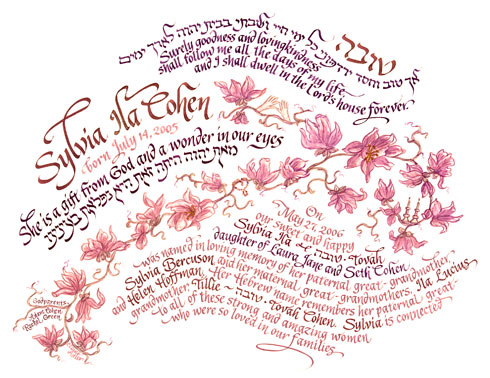 אך טוב וחסד ירדפוני כל ימי חיי ושבתי בבית יהוה לארך ימים
טובה
Surely goodness and lovingkindness
shall follow me all the days of my life,
and I shall dwell in the Lord's house forever.
Sylvia Ila Cohen
born July 14, 2005
She is a gift from God and a wonder in our eyes
מאת יהוה היתה זאת היא נפלאת בעינינו
On
May 27, 2006
our sweet and happy
Sylvia Ila ~ טובה ~ Tovah
daughter of Laura Jane and Seth Cohen,
was named in loving memory of her paternal great-grandmother,
Sylvia Bercuson and her maternal great-grandmothers, Ila Lucius
and Helen Hoffman. Her Hebrew name remembers her paternal great-
grandmother, Tillie ~ טובה ~ Tovah Cohen. Sylvia is connected
to all of these strong and amazing women
who were so loved in our families.
Godparents
Adam Cohen
Rachel Green